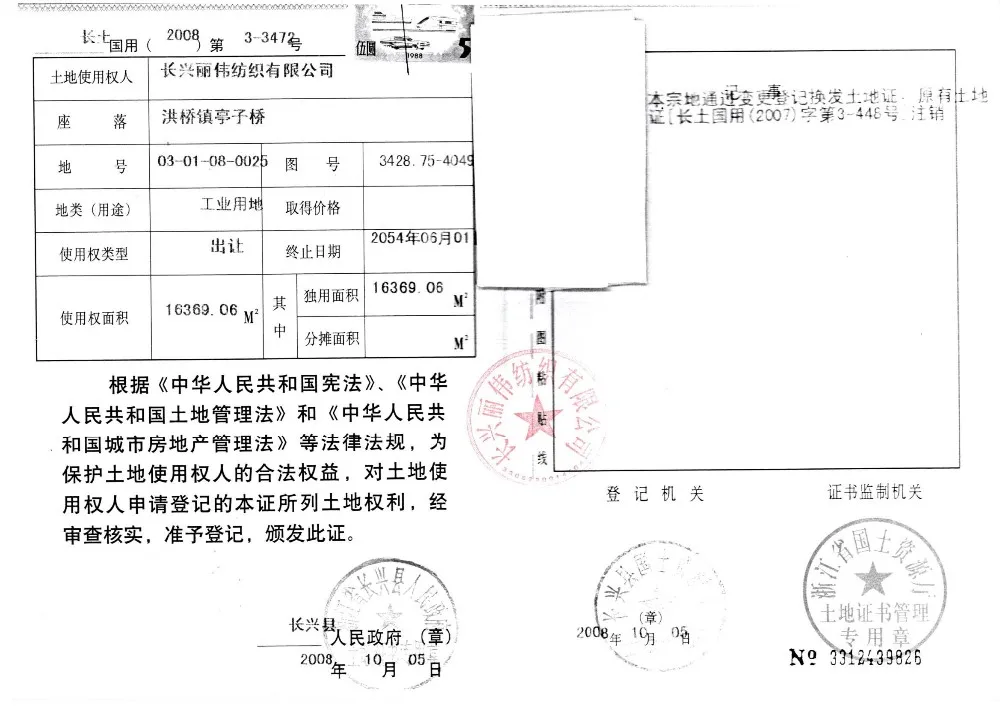 长土国用（2008）第3-3472号
伍圆 5
1988
土地使用权人 长兴丽伟纺织有限公司
座落 洪桥镇亭子桥
地号 03-01-08-0025 图号 3428.75-4049
地类（用途） 工业用地 取得价格
使用权类型 出让 终止日期 2054年06月01
使用权面积 16369.06 M² 其中 独用面积 16369.06 M²
分摊面积 M²
根据《中华人民共和国宪法》、《中华
人民共和国土地管理法》和《中华人民共
和国城市房地产管理法》等法律法规，为
保护土地使用权人的合法权益，对土地使
用权人申请登记的本证所列土地权利，经
审查核实，准予登记，颁发此证。
长兴县人民政府（章）
2008年10月05日
记事
本宗地通过变更登记换发土地证，原有土地
证[长土国用(2007)字第3-448号.注销
附图粘贴线
长兴丽伟纺织有限公司
登记机关
（章）
2008年10月05日
证书监制机关
浙江省国土资源厅
土地证书管理
专用章
Nº 3312439826